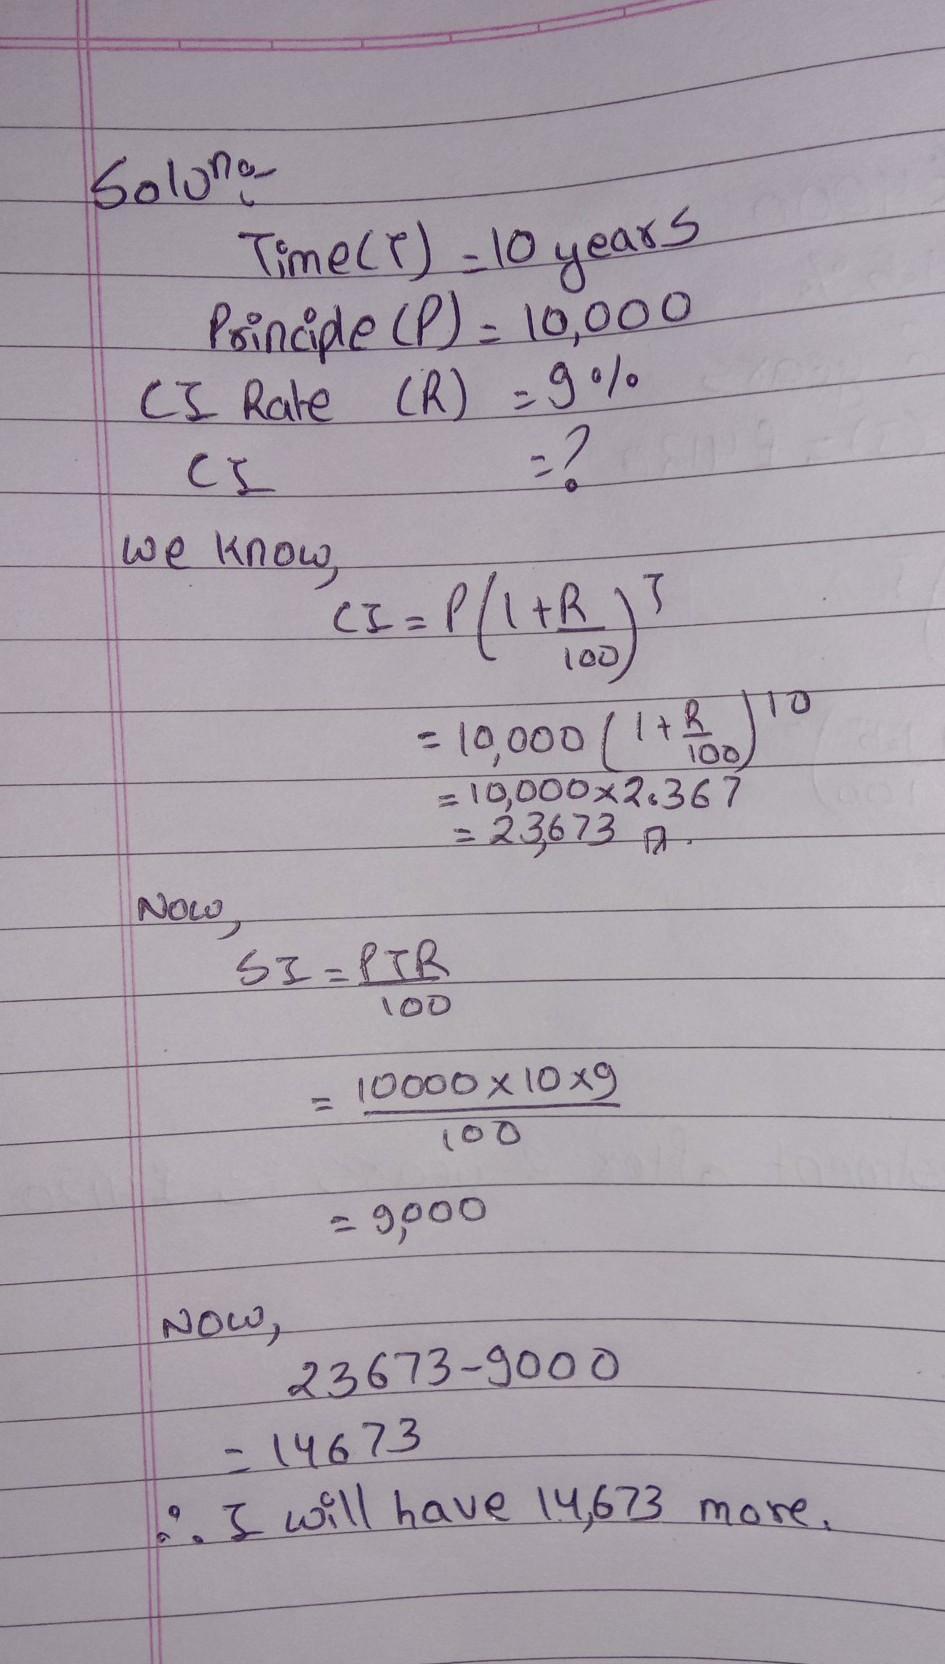 Solono-
Time(T) = 10 years
Principle (P) = 10,000
CI Rate (R) = 9%
CI = ?
We know,
CI = P(1+R/100)^T
= 10,000 (1+R/100)^10
= 10,000×2.367
= 23,673
Now,
SI = PTR/100
= 10000×10×9/100
= 9,000
Now,
23673-9000
= 14673
∴ I will have 14,673 more.